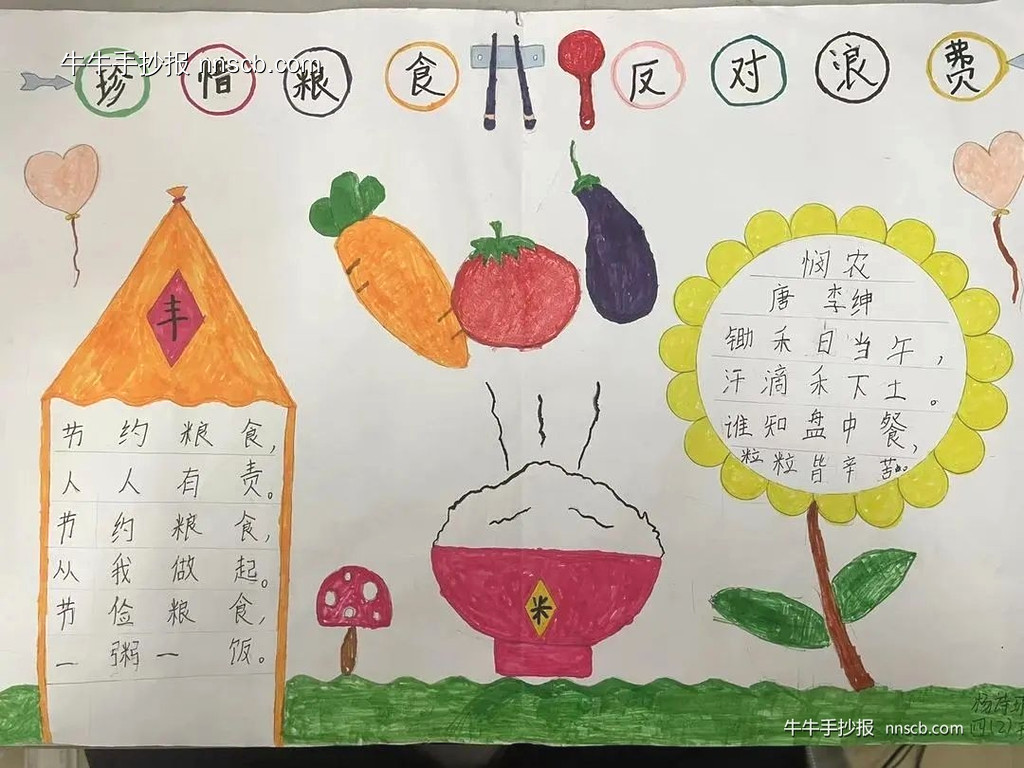 牛牛手抄报 nnscb.com
珍惜粮食 反对浪费
丰
节约粮食,
人人有责。
节约粮食,
从我做起。
节俭粮食,
一粥一饭。
米
悯农
唐 李绅
锄禾日当午,
汗滴禾下土。
谁知盘中餐,
粒粒皆辛苦。
四(2)
牛牛手抄报 nnscb.com